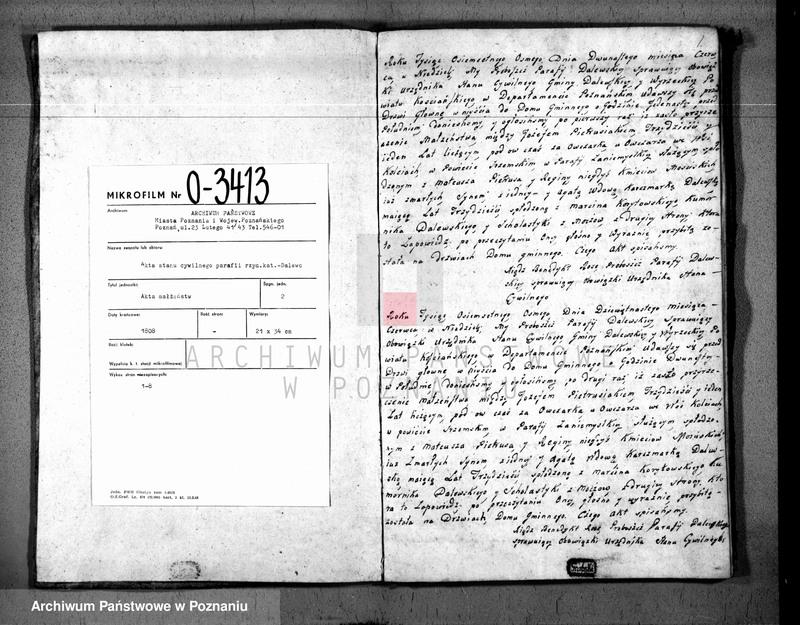 MIKROFILM Nr O-3413
Archiwum
ARCHIWUM PAŃSTWOWE
Miasta Poznania i Wojew.Poznańskiego
Poznań,ul.23 Lutego 41/43 Tel.546-01
Nazwa zespołu lub zbioru
Akta stanu cywilnego parafii rzym.kat.-Dalewo
Tytuł jednostki
Sygn. jedn.
Akta małżeństw
2
Daty krańcowe:
Ilość stron:
Wymiary:
1808
-
21 x 34 cm
Ilość klatek:
Wykaz stron niezapisanych:
1-8
Roku Tysiąc Osiemsetnego Osmego Dnia Dwunastego miesiąca Czerw
ca, w Niedzielę, My Proboszcz Parafii Dalewskiey Sprawuiący Obowiąz
ki Urzędnika Stanu Cywilnego Gminy Dalewskiey y Wyrzeckiey Po
wiatu Kościańskiego w Departamencie Poznańskim udawszy się przed
Drzwi Głowne weyścia do Domu Gminnego o Godzinie Jedenastey przed
Południem donieśliśmy y ogłosiliśmy po pierwszy raz iż zaszło przyrze
czenie Małżeństwa między Jozefem Pietrusiakiem Trzydzieści y
ieden Lat liczącym pod ow czas za Owczarka u Owczarza we Wsi
Kołciach w Powiecie Szremskim w Parafii Zaniemyslkiey Służącym spło
dzonym z Mateusza Piekusa y Reginy niegdyś Kmieciow
iuż zmarłych Synem z iedney - y Agatą wdową Karczmarką Dalewską
maiącą Lat Trzydzieści spłodzoną z Marcina Korytowskiego Komor
nika Dalewskiego y Scholastyki z Moszow z drugiey Strony która
to Zapowiedź po przeczytaniu Oney głośno y wyraźnie przybita zo-
stała na drzwiach Domu gminnego. Czego Akt spisaliśmy.
Xiądz Benedykt Proboszcz Parafii Dalew-
skiey sprawuiący obowiązki Urzędnika Stanu
Cywilnego
Roku Tysiąc Osiemsetnego Osmego Dnia Dziewiętnastego miesiąca
Czerwca w Niedzielę My Proboszcz Parafii Dalewskiey Sprawuiący
Obowiązki Urzędnika Stanu Cywilnego Gminy Dalewskiey y Wyrzeckiey Po
wiatu Kościańskiego w Departamencie Poznańskim Udawszy się przed
Drzwi głowne weyścia do Domu Gminnego o Godzinie Dwunastey
w Południe donieśliśmy y ogłosiliśmy po drugi raz iż zaszło przyrze-
czenie małżeństwa między Jozefem Pietrusiakiem Trzydzieści y ieden
Lat liczącym, pod ow czas za Owczarka u Owczarza we Wsi Kołciach
w powiecie Szremskim w Parafii Zaniemyslkiey Służącym spłodzo-
nym z Mateusza Piekusa y Reginy niegdyś Kmieciow
iuż Zmarłych Synem z iedney y Agatą Wdową Karczmarką Dalew-
ską maiącą Lat Trzydzieści spłodzoną z Marcina Korytowskiego Ko
mornika Dalewskiego y Scholastyki z Moszow z drugiey Strony, kto
ra to Zapowiedź po przeczytaniu Oney głośno y wyraźnie przybitą
została na Drzwiach Domu Gminnego. Czego Akt spisaliśmy.
Xiądz Benedykt Proboszcz Parafii Dalewskiey
sprawuiący Obowiązki Urzędnika Stanu Cywilnego
ARCHIWUM PAŃSTWOWE
W POZNANIU
Archiwum Państwowe w Poznaniu